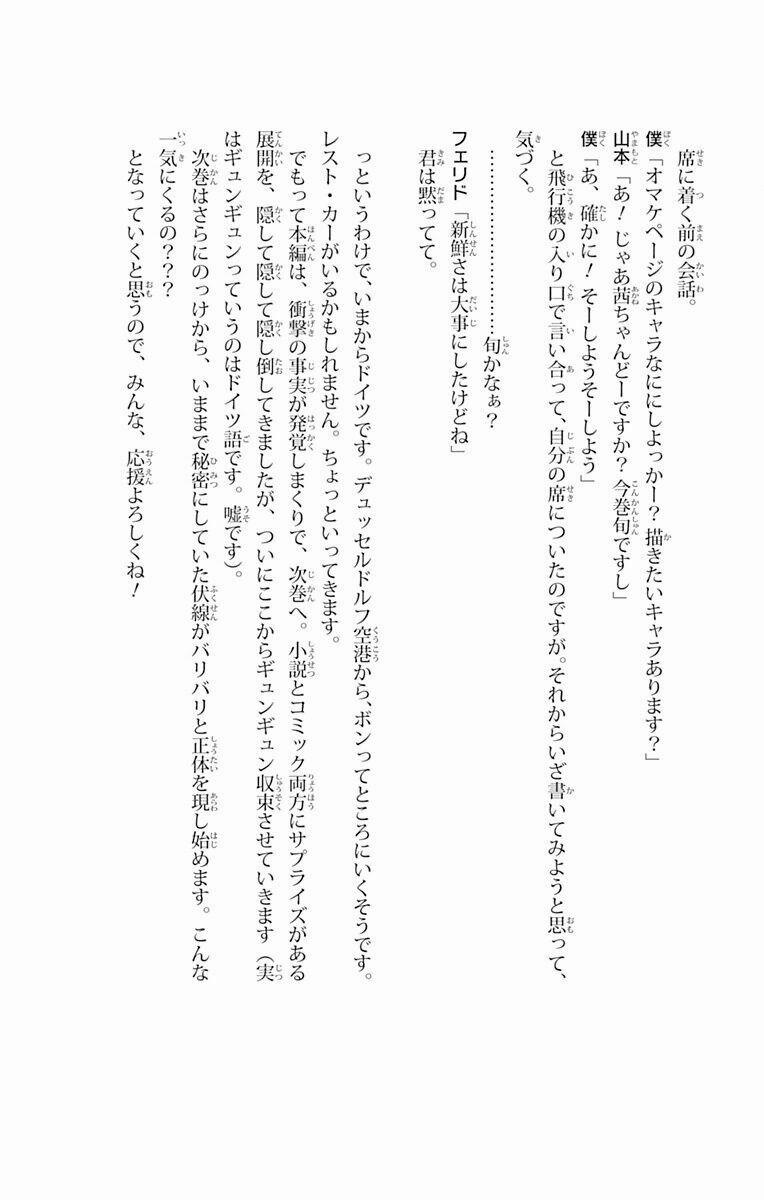 席に着く前の会話。
僕「オマケページのキャラなににしよっかー？ 描きたいキャラあります？」
山本「あ！ じゃあ茜ちゃんどーですか？ 今巻旬ですし」
僕「あ、確かに！ そーしようそーしよう」
と飛行機の入り口で言い合って、自分の席についたのですが。それからいざ書いてみようと思って、
気づく。
……………………旬かなぁ？
フェリド「新鮮さは大事にしたけどね」
君は黙ってて。
っというわけで、いまからドイツです。デュッセルドルフ空港から、ボンってところにいくそうです。
レスト・カーがいるかもしれません。ちょっといってきます。
でもって本編は、衝撃の事実が発覚しまくりで、次巻へ。小説とコミック両方にサプライズがある
展開を、隠して隠して隠し倒してきましたが、ついにここからギュンギュン収束させていきます（実
はギュンギュンっていうのはドイツ語です。嘘です）。
次巻はさらにのっけから、いままで秘密にしていた伏線がバリバリと正体を現し始めます。こんな
一気にくるの？？？
となっていくと思うので、みんな、応援よろしくね！